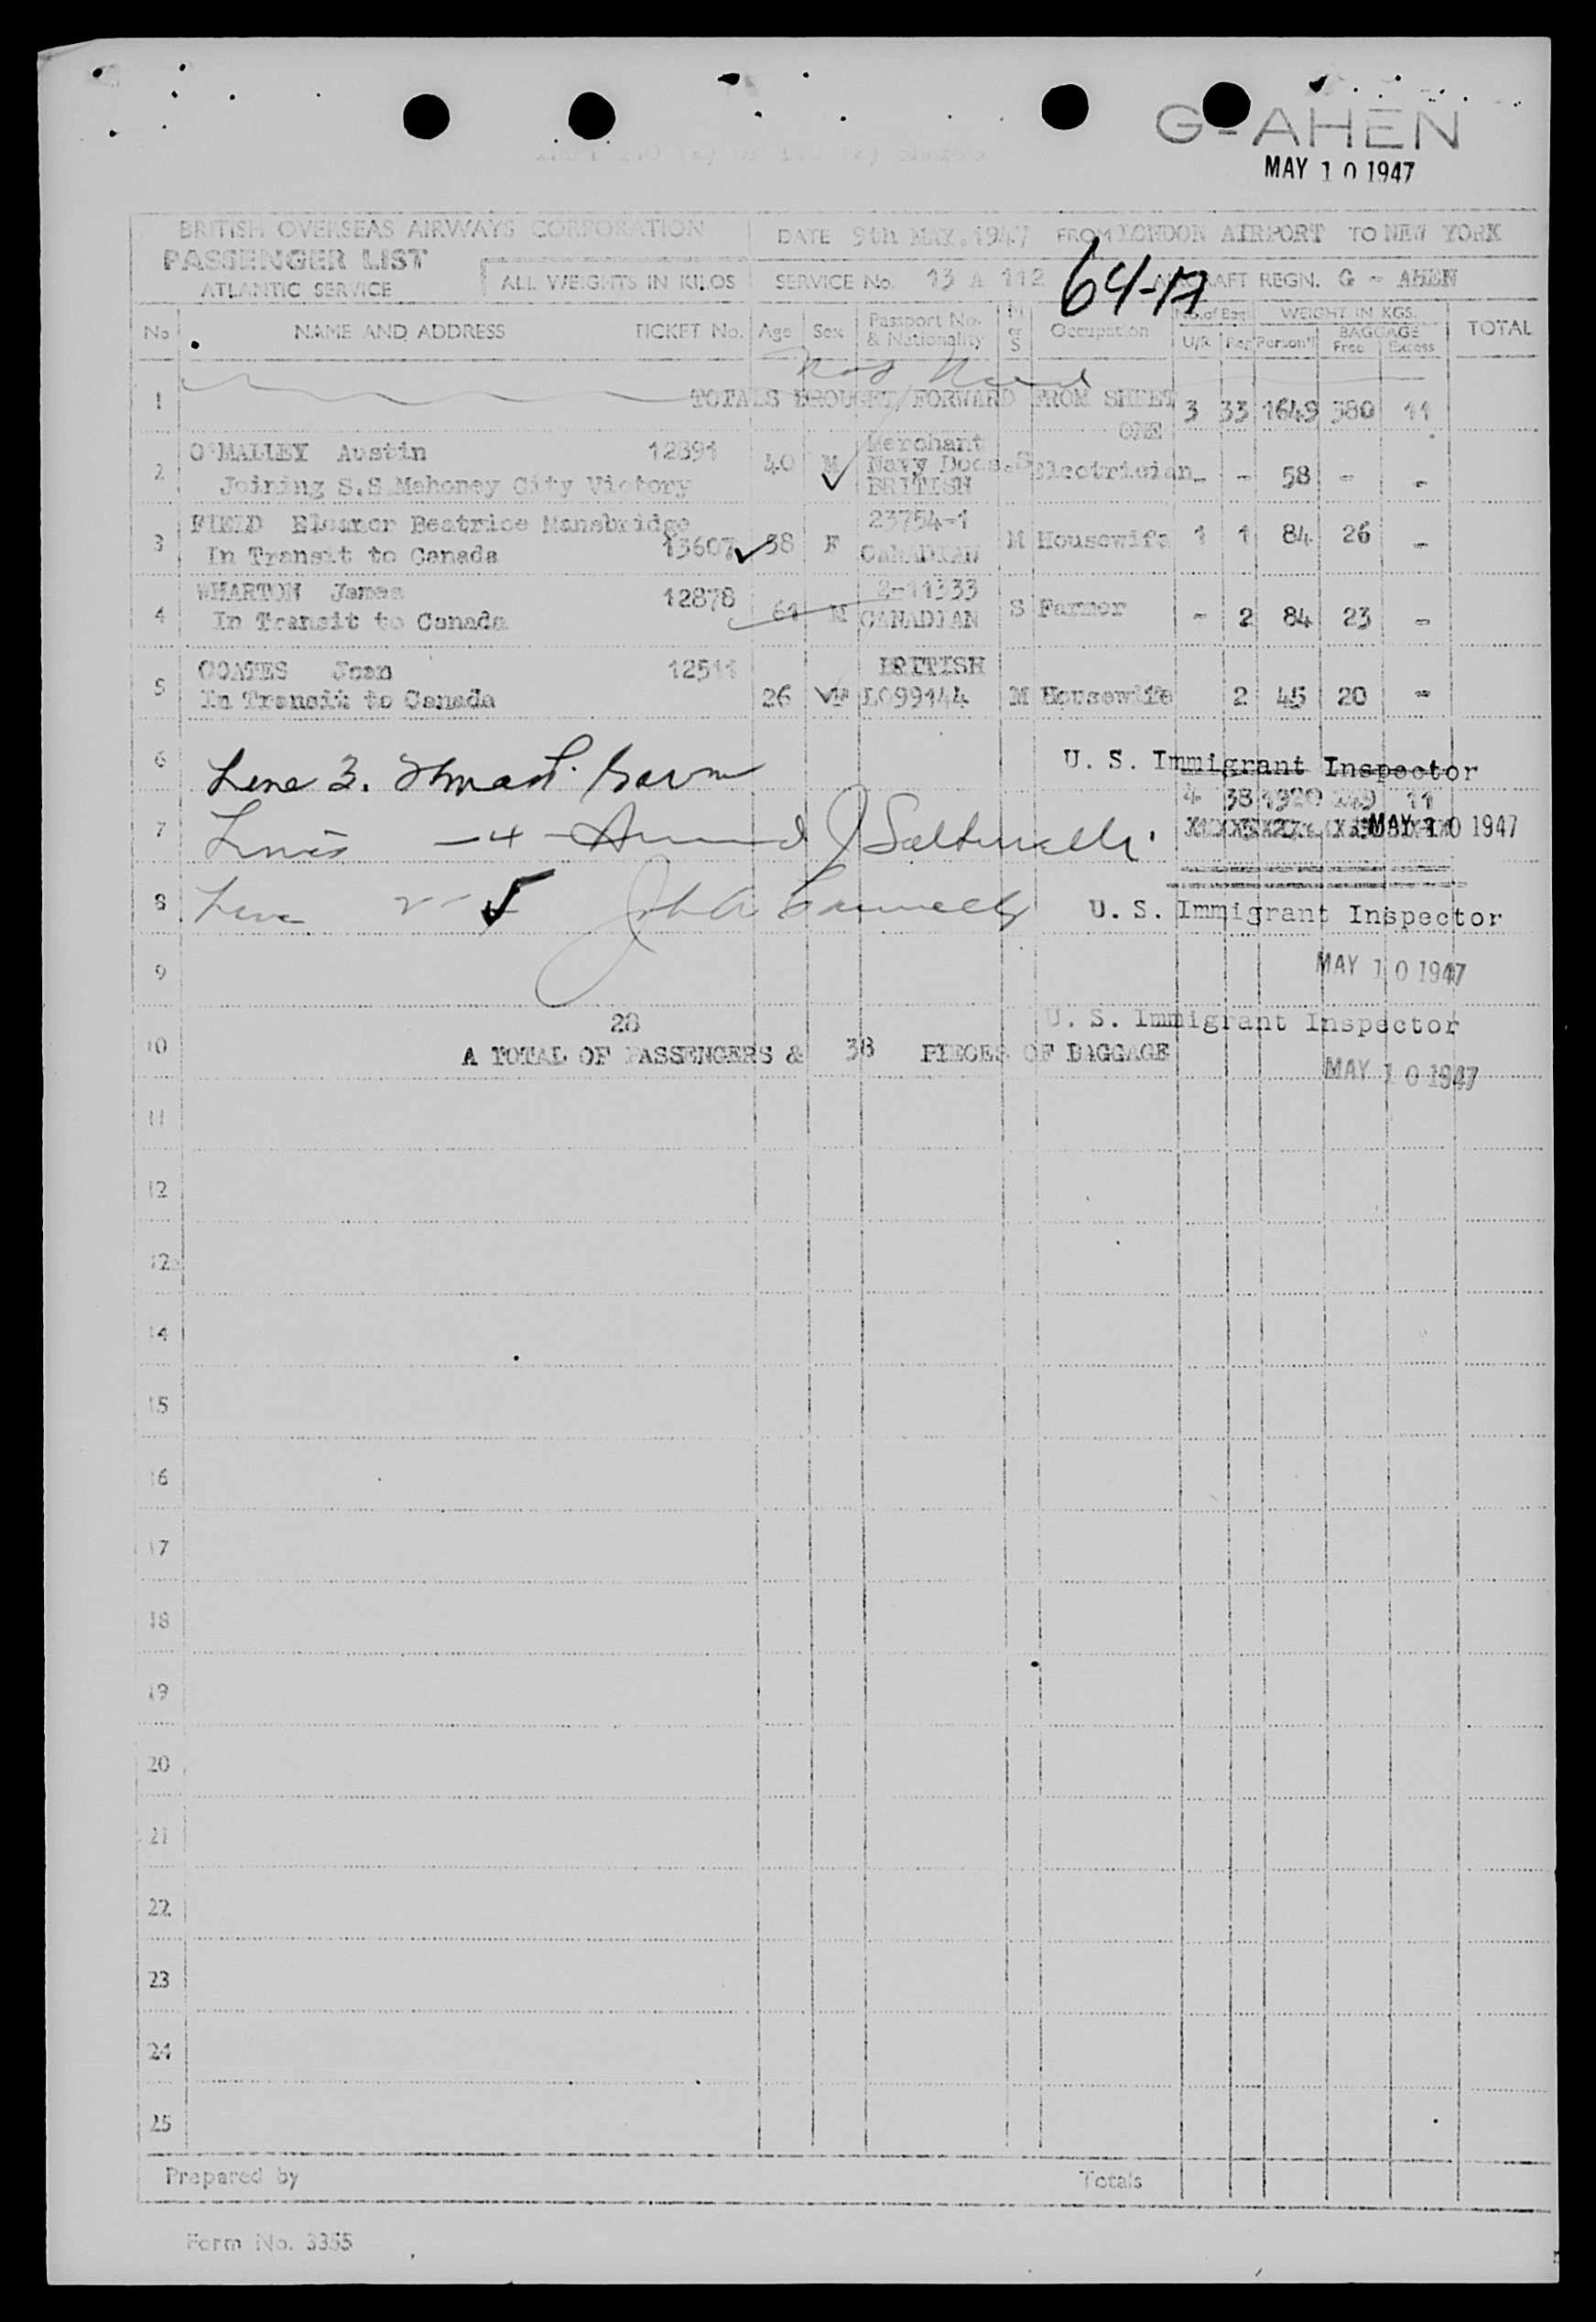 G-AHEN
MAY 10 1947
BRITISH OVERSEAS AIRWAYS CORPORATION
PASSENGER LIST
ATLANTIC SERVICE
ALL WEIGHTS IN KILOS
DATE 9th MAY, 1947 FROM LONDON AIRPORT TO NEW YORK
SERVICE No. 13 A 112 AIRCRAFT REGN. G - AHEN
64-17
No NAME AND ADDRESS TICKET No. Age Sex Passport No. & Nationality M or S Occupation No. of Bag: U/R Reg WEIGHT IN KGS. Person'l BAGGAGE Free Excess TOTAL
1 TOTALS BROUGHT FORWARD FROM SHEET ONE 3 33 1649 380 11
2 O'MALLEY Austin 12891 40 M Merchant Navy Docs. BRITISH S Electrician - - 58 - -
Joining S.S Mahoney City Victory
3 FIELD Eleanor Beatrice Mansbridge 13607 38 F 23754-1 CANADIAN M Housewife 1 1 84 26 -
In Transit to Canada
4 WHARTON James 12878 61 M 2-11333 CANADIAN S Farmer - 2 84 23 -
In Transit to Canada
5 COATES Joan 12511 26 F BRITISH L099144 M Housewife 2 45 20 -
In Transit to Canada
6 Line 3.
U. S. Immigrant Inspector
4 38 1920 449 11
7 Lines - 4 -
MAY 10 1947
8 Line
U. S. Immigrant Inspector
9
MAY 10 1947
U. S. Immigrant Inspector
28
10 A TOTAL OF PASSENGERS & 38 PIECES OF BAGGAGE
MAY 10 1947
11
12
12a
14
15
16
17
18
19
20
21
22
23
24
25
Prepared by Totals
Form No. 3355